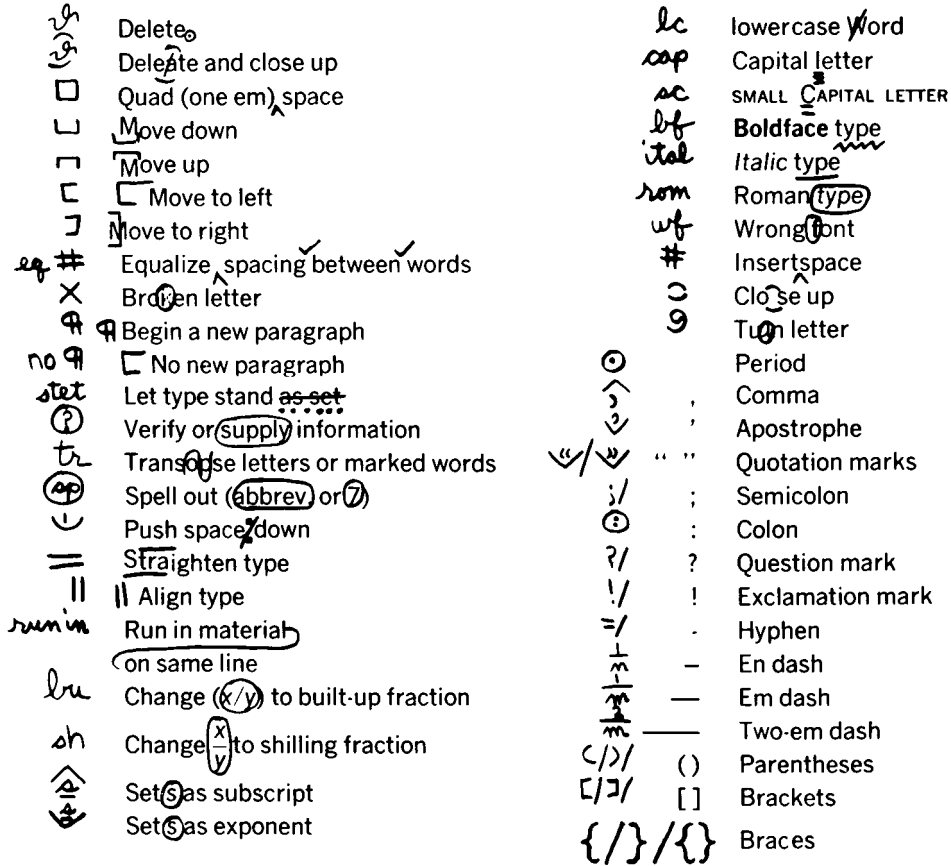 Delete
Deleate and close up
□ Quad (one em) space
Move down
Move up
Move to left
Move to right
eq # Equalize spacing between words
× Broken letter
¶ ¶ Begin a new paragraph
no ¶ No new paragraph
stet Let type stand as set
? Verify or supply information
tr Transopse letters or marked words
sp Spell out (abbrev. or 7)
Push space down
= Straighten type
|| || Align type
run in Run in material
on same line
bu Change (x/y) to built-up fraction
sh Change x/y to shilling fraction
s Set s as subscript
s Set s as exponent
lc lowercase Word
cap Capital letter
sc SMALL CAPITAL LETTER
bf Boldface type
ital Italic type
rom Roman type
wf Wrong font
# Insertspace
Clo se up
9 Turn letter
⊙ Period
, , Comma
’ ’ Apostrophe
“/” “ ” Quotation marks
;/ ; Semicolon
: : Colon
?/ ? Question mark
!/ ! Exclamation mark
=/ - Hyphen
1/n – En dash
1/m — Em dash
2/m —— Two-em dash
(/)/ ( ) Parentheses
[/]/ [ ] Brackets
{/}/{} Braces